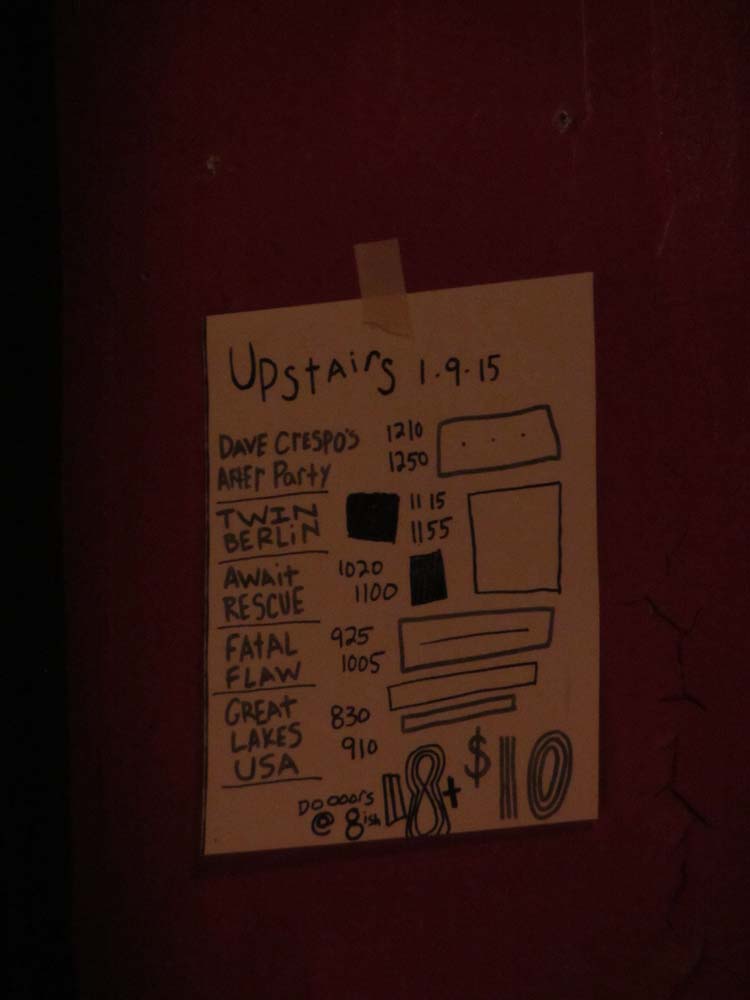 Upstairs 1.9.15
DAVE Crespo's 1210
After Party 1250
TWIN 11 15
BERLiN 1155
AWAit 1020
RESCUE 1100
FAtAL 925
FLAW 1005
GREAt 830
LAKES 910
USA
DOoooors 18+ $10
@ 8ish